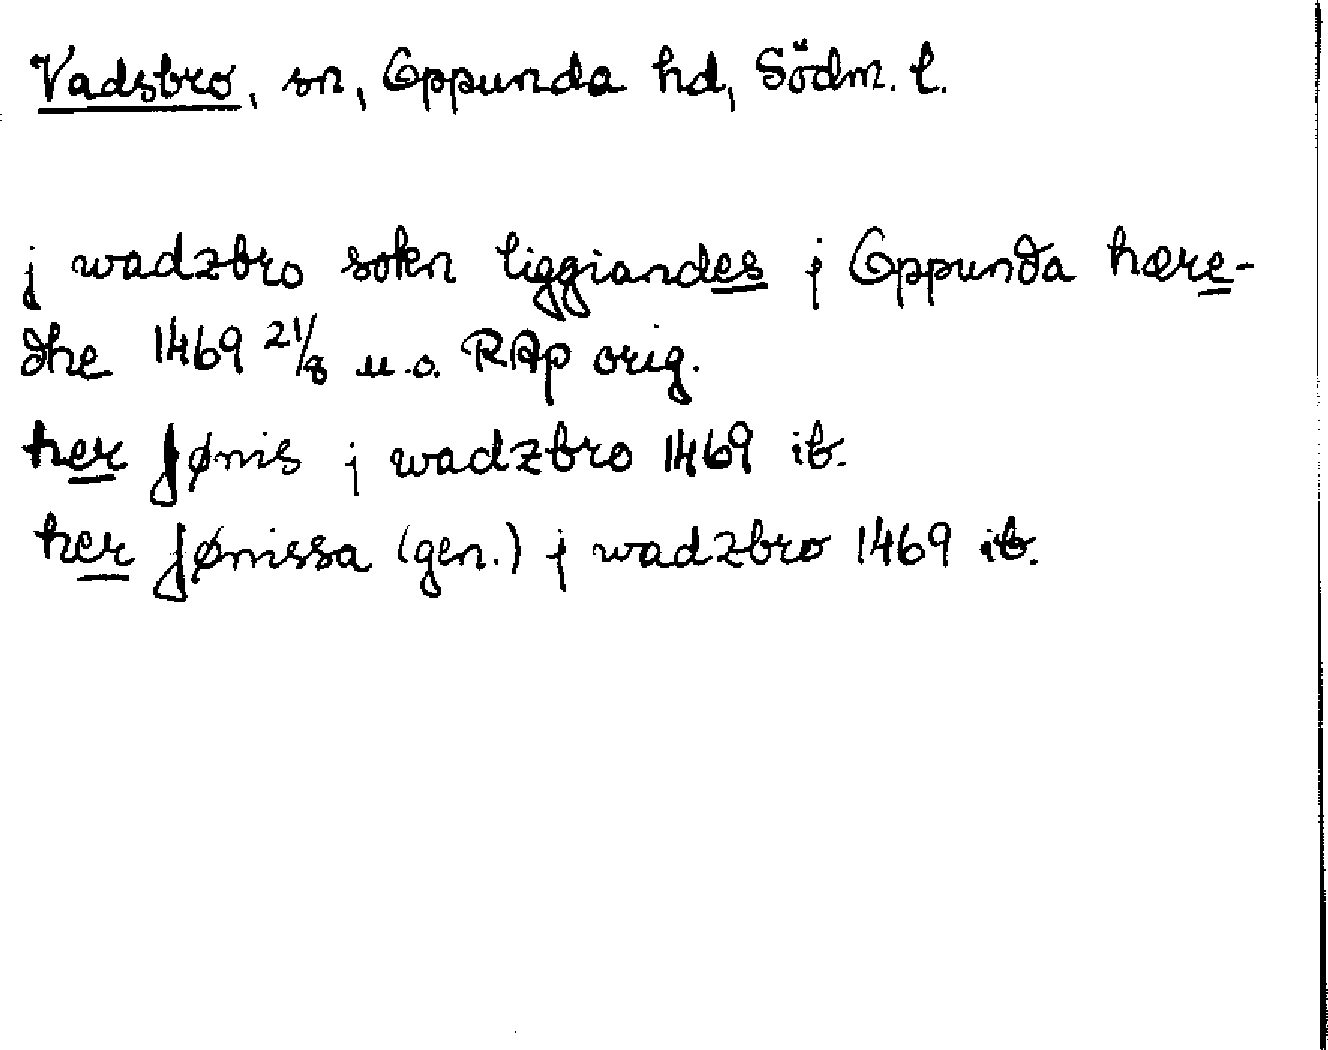 Vadsbro, sn, Oppunda hd, Södm. l.
j wadzbro sokn liggiandes j Oppunda hære-
dhe 1469 21/8 u.o. RAp orig.
her Jønis j wadzbro 1469 ib.
her Jønissa (gen.) j wadzbro 1469 ib.